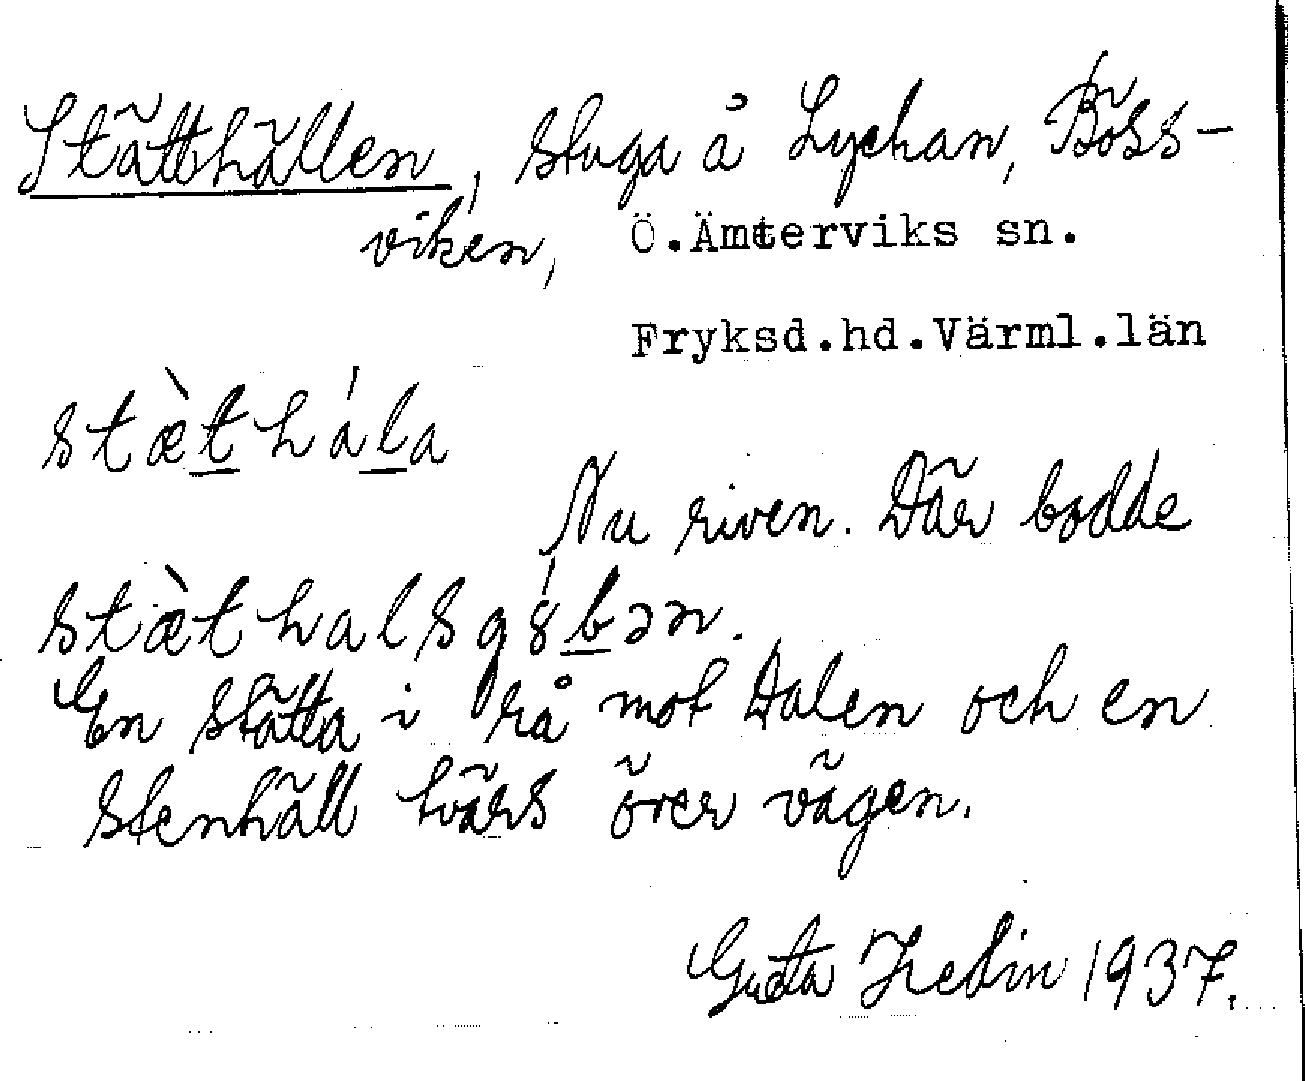 Stätthällen, stuga å Lyckan, Böss-
viken, Ö.Ämterviks sn.
Fryksd.hd.Värml.län
stæ̀thála
Nu riven. Där bodde
stæ̀thalsgübən.
En stätta i rå mot Dalen och en
stenhäll tvärs över vägen.
Greta Hedin 1937.